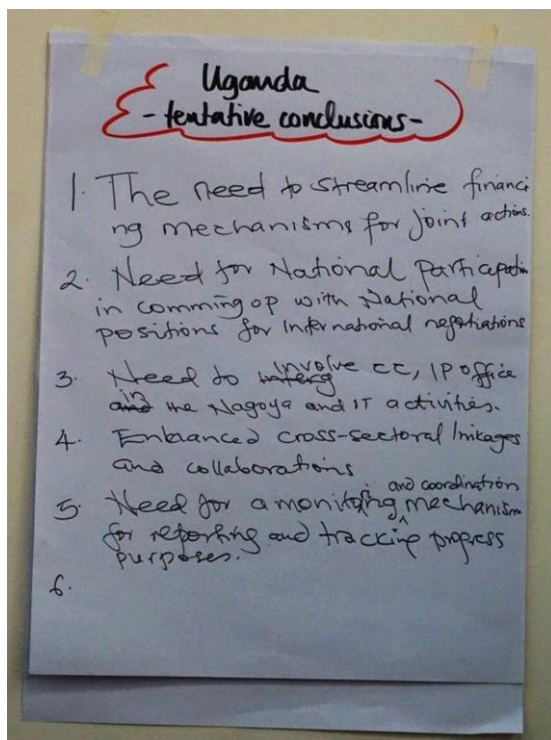 Uganda
- tentative conclusions -
1. The need to streamline financi
ng mechanisms for joint actions.
2. Need for National Participation
in comming op with National
positions for International negotiations
3. Need to involve CC, IP office
in the Nagoya and IT activities.
4. Enhanced cross-sectoral linkages
and collaborations
and coordination
5. Need for a monitoring mechanism
for reporting and tracking progress
purposes.
6.